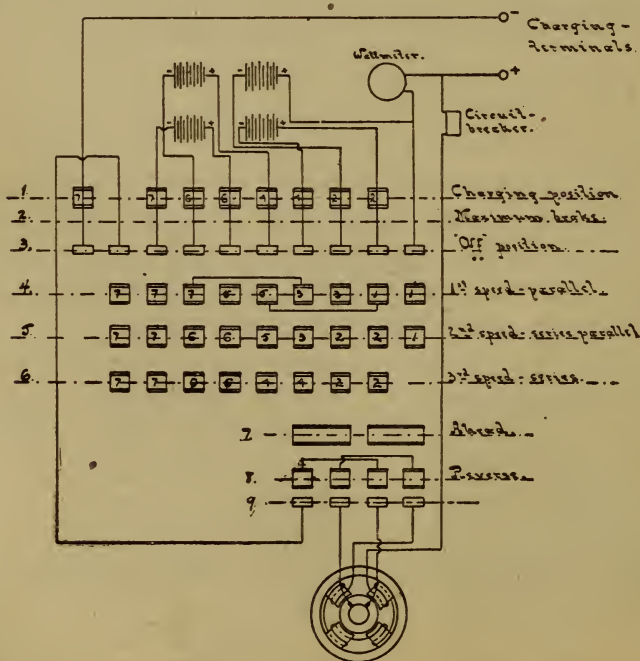 Charging-
terminals.
-
+
Voltmeter.
Circuit-
breaker.
- + - +
- + - +
1. 7 7 6 6 4 4 2 2 Charging position
2. Maximum brake.
3. "Off" position
4. 7 7 7 6 5 3 3 1 1 1st speed-parallel.
5. 7 7 6 6 5 3 2 2 1 2nd speed-series parallel
6. 7 7 6 6 4 4 2 2 3rd speed-series.
7 Ahead.
8. Reverse.
9